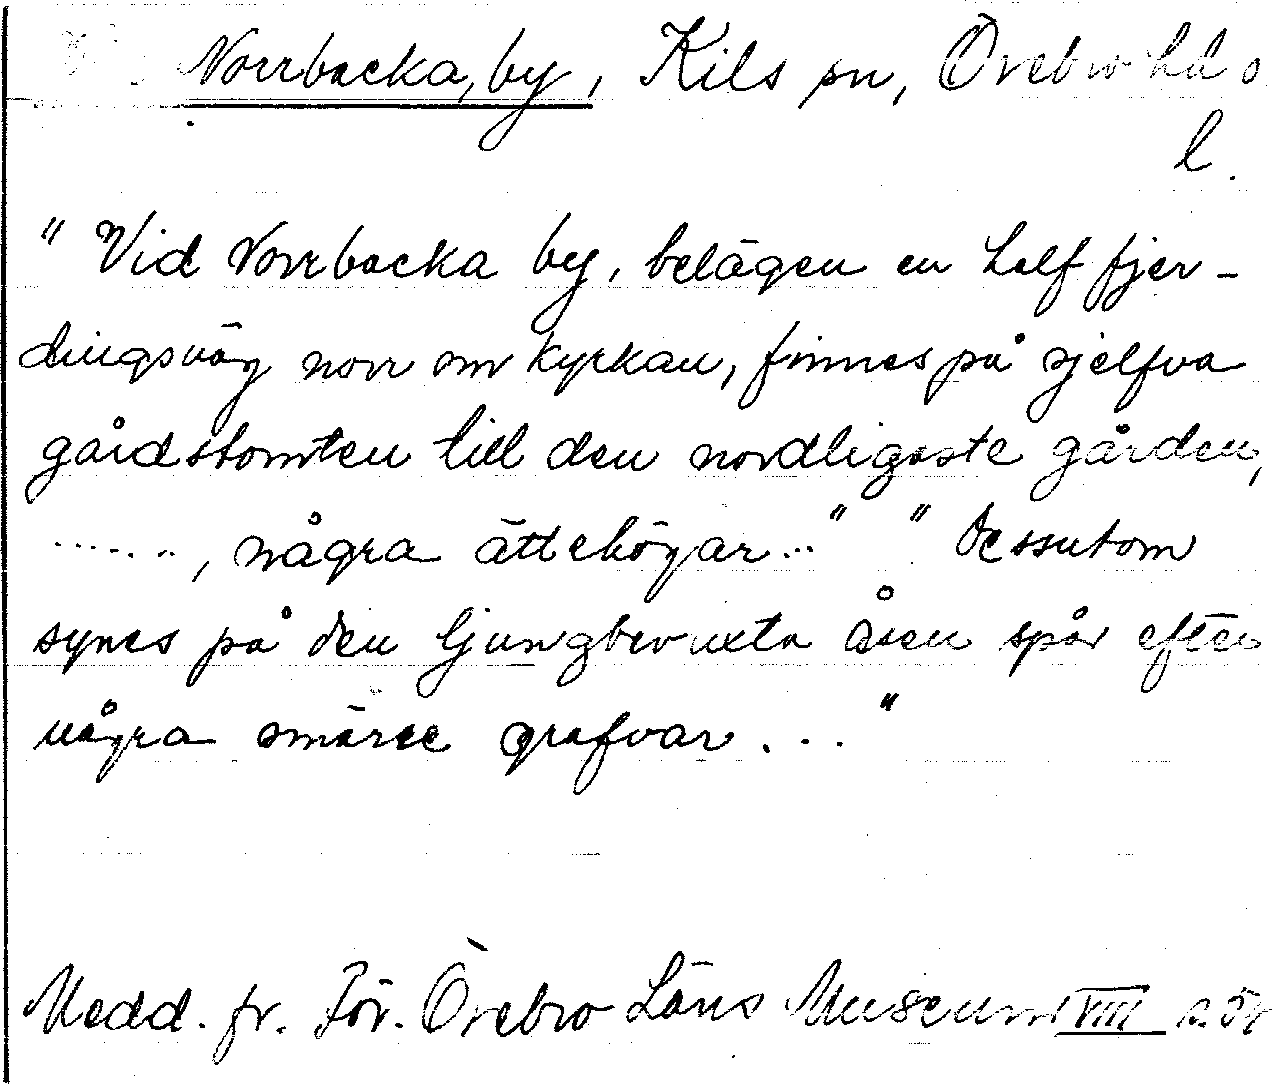 Norrbacka, by, Kils sn, Örebro hd o
l.
" Vid Norrbacka by, belägen en half fjer-
dingsväg norr om kyrkan, finnes på sjelfva
gårdstomten till den nordligaste gården,
......, några ättehögar..." " Dessutom
synes på den ljungbevuxta åsen spår efter
några smärre grafvar..."
Medd. fr. För. Örebro Läns Museum VIII s.